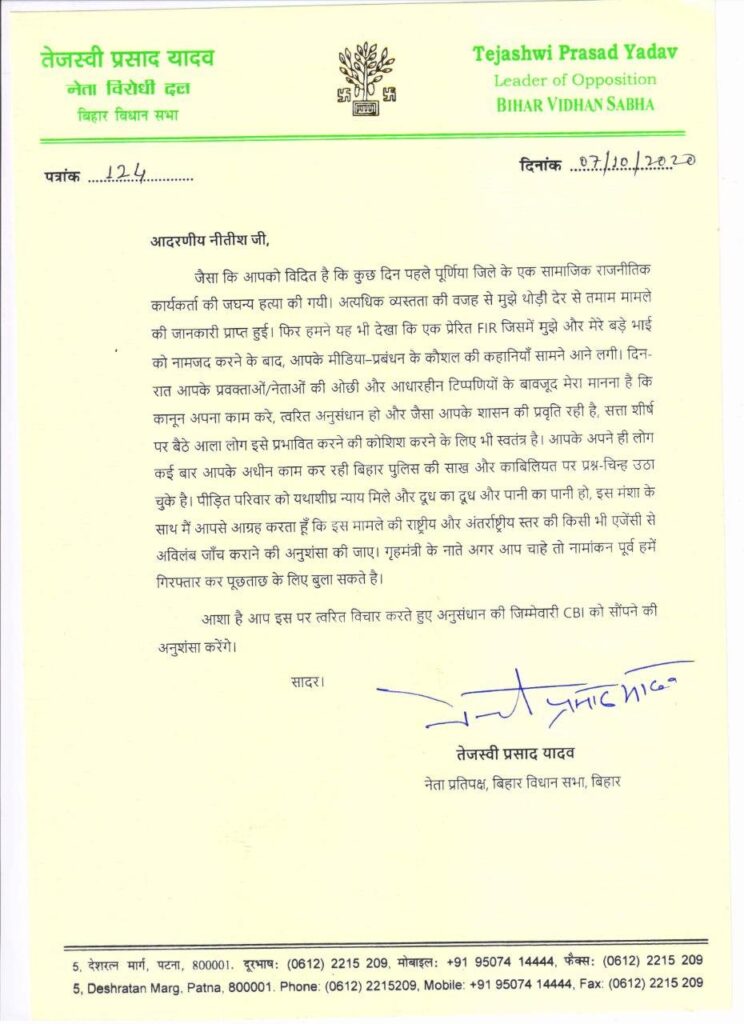 तेजस्वी प्रसाद यादव
नेता विरोधी दल
बिहार विधान सभा
Tejashwi Prasad Yadav
Leader of Opposition
BIHAR VIDHAN SABHA
पत्रांक ....124..............
दिनांक ..07/10/2020
आदरणीय नीतीश जी,
जैसा कि आपको विदित है कि कुछ दिन पहले पूर्णिया जिले के एक सामाजिक राजनीतिक
कार्यकर्ता की जघन्य हत्या की गयी। अत्यधिक व्यस्तता की वजह से मुझे थोड़ी देर से तमाम मामले
की जानकारी प्राप्त हुई। फिर हमने यह भी देखा कि एक प्रेरित FIR जिसमें मुझे और मेरे बड़े भाई
को नामजद करने के बाद, आपके मीडिया–प्रबंधन के कौशल की कहानियाँ सामने आने लगी। दिन-
रात आपके प्रवक्ताओं/नेताओं की ओछी और आधारहीन टिप्पणियों के बावजूद मेरा मानना है कि
कानून अपना काम करे, त्वरित अनुसंधान हो और जैसा आपके शासन की प्रवृति रही है, सत्ता शीर्ष
पर बैठे आला लोग इसे प्रभावित करने की कोशिश करने के लिए भी स्वतंत्र है। आपके अपने ही लोग
कई बार आपके अधीन काम कर रही बिहार पुलिस की साख और काबिलियत पर प्रश्न-चिन्ह उठा
चुके है। पीड़ित परिवार को यथाशीघ्र न्याय मिले और दूध का दूध और पानी का पानी हो, इस मंशा के
साथ मैं आपसे आग्रह करता हूँ कि इस मामले की राष्ट्रीय और अंतर्राष्ट्रीय स्तर की किसी भी एजेंसी से
अविलंब जाँच कराने की अनुशंसा की जाए। गृहमंत्री के नाते अगर आप चाहे तो नामांकन पूर्व हमें
गिरफ्तार कर पूछताछ के लिए बुला सकते है।
आशा है आप इस पर त्वरित विचार करते हुए अनुसंधान की जिम्मेवारी CBI को सौंपने की
अनुशंसा करेंगे।
सादर।
तेजस्वी प्रसाद यादव
नेता प्रतिपक्ष, बिहार विधान सभा, बिहार
5, देशरत्न मार्ग, पटना, 800001. दूरभाष: (0612) 2215 209, मोबाइल: +91 95074 14444, फैक्स: (0612) 2215 209
5, Deshratan Marg, Patna, 800001. Phone: (0612) 2215209, Mobile: +91 95074 14444, Fax: (0612) 2215 209